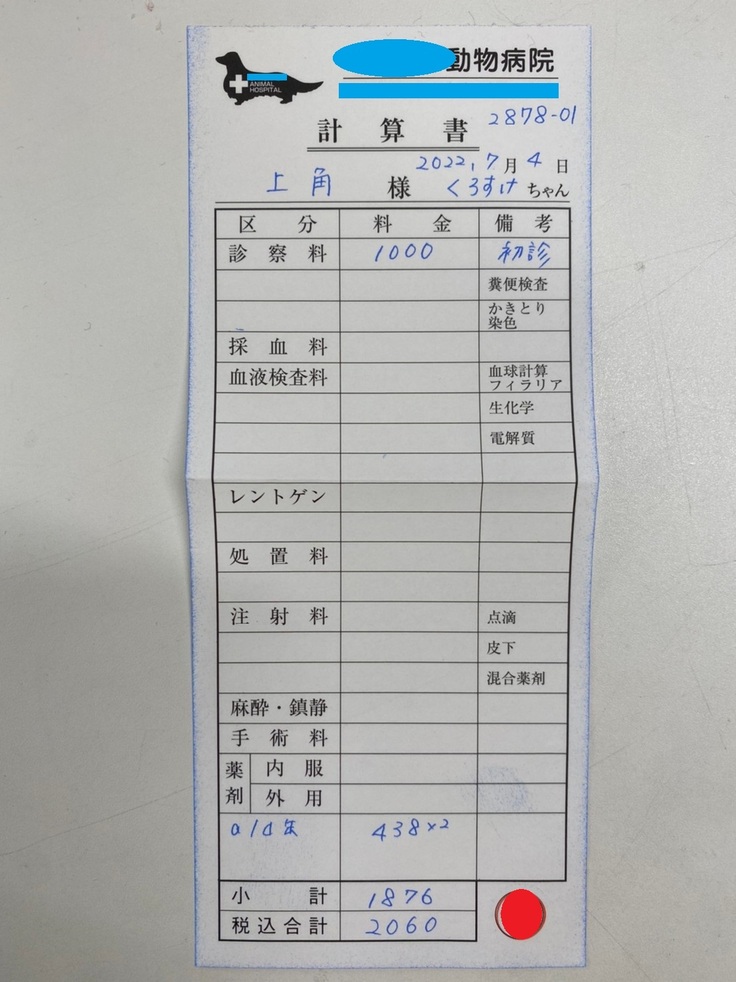 動物病院
ANIMAL
HOSPITAL
2878-01
計算書
2022, 7月4日
上角 様 くろすけ ちゃん
区分 料金 備考
診察料 1000 初診
糞便検査
かきとり
染色
採血料
血液検査料 血球計算
フィラリア
生化学
電解質
レントゲン
処置料
注射料 点滴
皮下
混合薬剤
麻酔・鎮静
手術料
薬剤 内服
外用
a/d缶 438×2
小計 1876
税込合計 2060